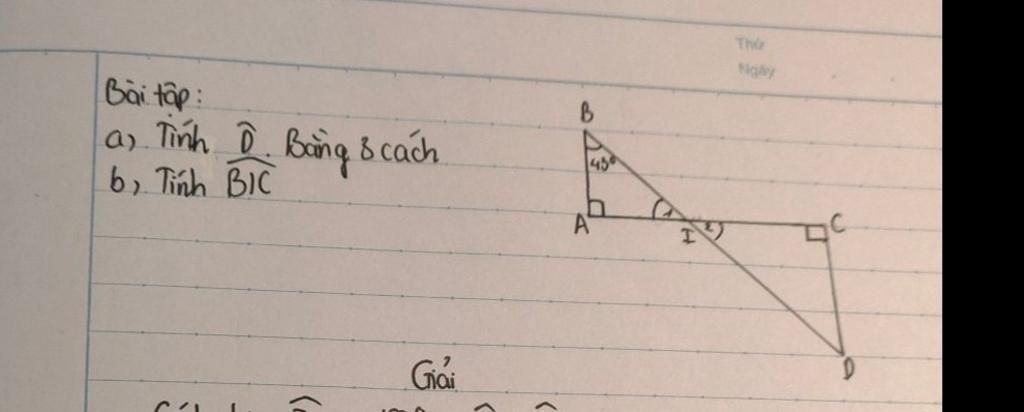 Thứ
Ngày
Bài tập:
a, Tính D̂. Bằng 3 cách
b, Tính BIC
B
A
I
C
D
1
2
Giải